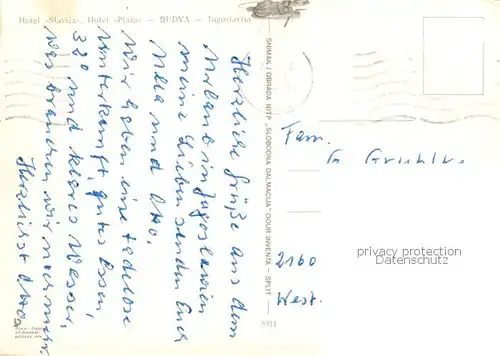 Hotel »Slavija«, Hotel »Plaža« — BUDVA — Jugoslavija
Herzliche Grüße aus dem
Urlaub in Jugoslawien
meine Lieben senden Euch
und Otto.
Wir haben eine tadellose
Unterkunft, gutes Essen,
32° und klares Wasser,
was brauchen wir noch mehr.
Herzlichst Otto
SNIMAK I OBRADA NITP „SLOBODNA DALMACIJA" OOUR INVENTA — SPLIT
5911
Fam.
G.
2160
West.
privacy protection
Datenschutz